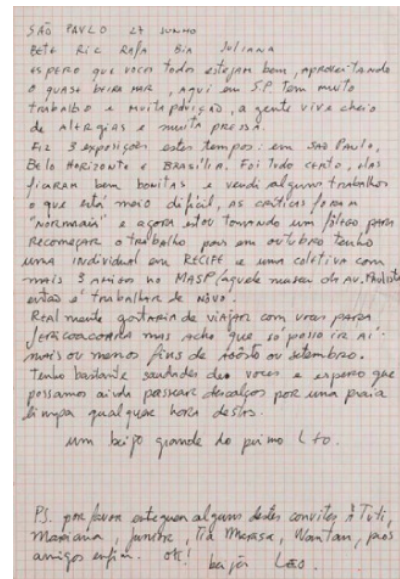 SÃO PAULO 27 JUNHO
BETE RIC RAFA BIA JULIANA
ESPERO que voces todos estejam bem, aproveitando
o quase beira mar, aqui em S.P. tem muito
trabalho e muita poluição, a gente vive cheio
de alergias e muita pressa.
Fiz 3 exposições estes tempos: em SÃO PAULO,
BELO HORIZONTE e BRASÍLIA. Foi tudo certo, elas
ficaram bem bonitas e vendi alguns trabalhos
o que está meio difícil, as críticas foram
"normais" e agora estou tomando um fôlego para
recomeçar o trabalho pois em outubro tenho
uma individual em RECIFE e uma coletiva com
mais 3 amigos no MASP (aquele museu da AV. Paulista
então é trabalhar de novo.
Realmente gostaria de viajar com voces para
JERICOACOARA mas acho que só posso ir aí
mais ou menos fins de agôsto ou setembro.
Tenho bastante saudades de voces e espero que
possamos ainda passear descalços por uma praia
limpa qualquer hora destas.
um beijo grande do primo Léo.
PS. por favor entreguem alguns destes convites à Tuti,
Mariana, Junior, Tia, pros
amigos enfim. OK! beijos Léo.